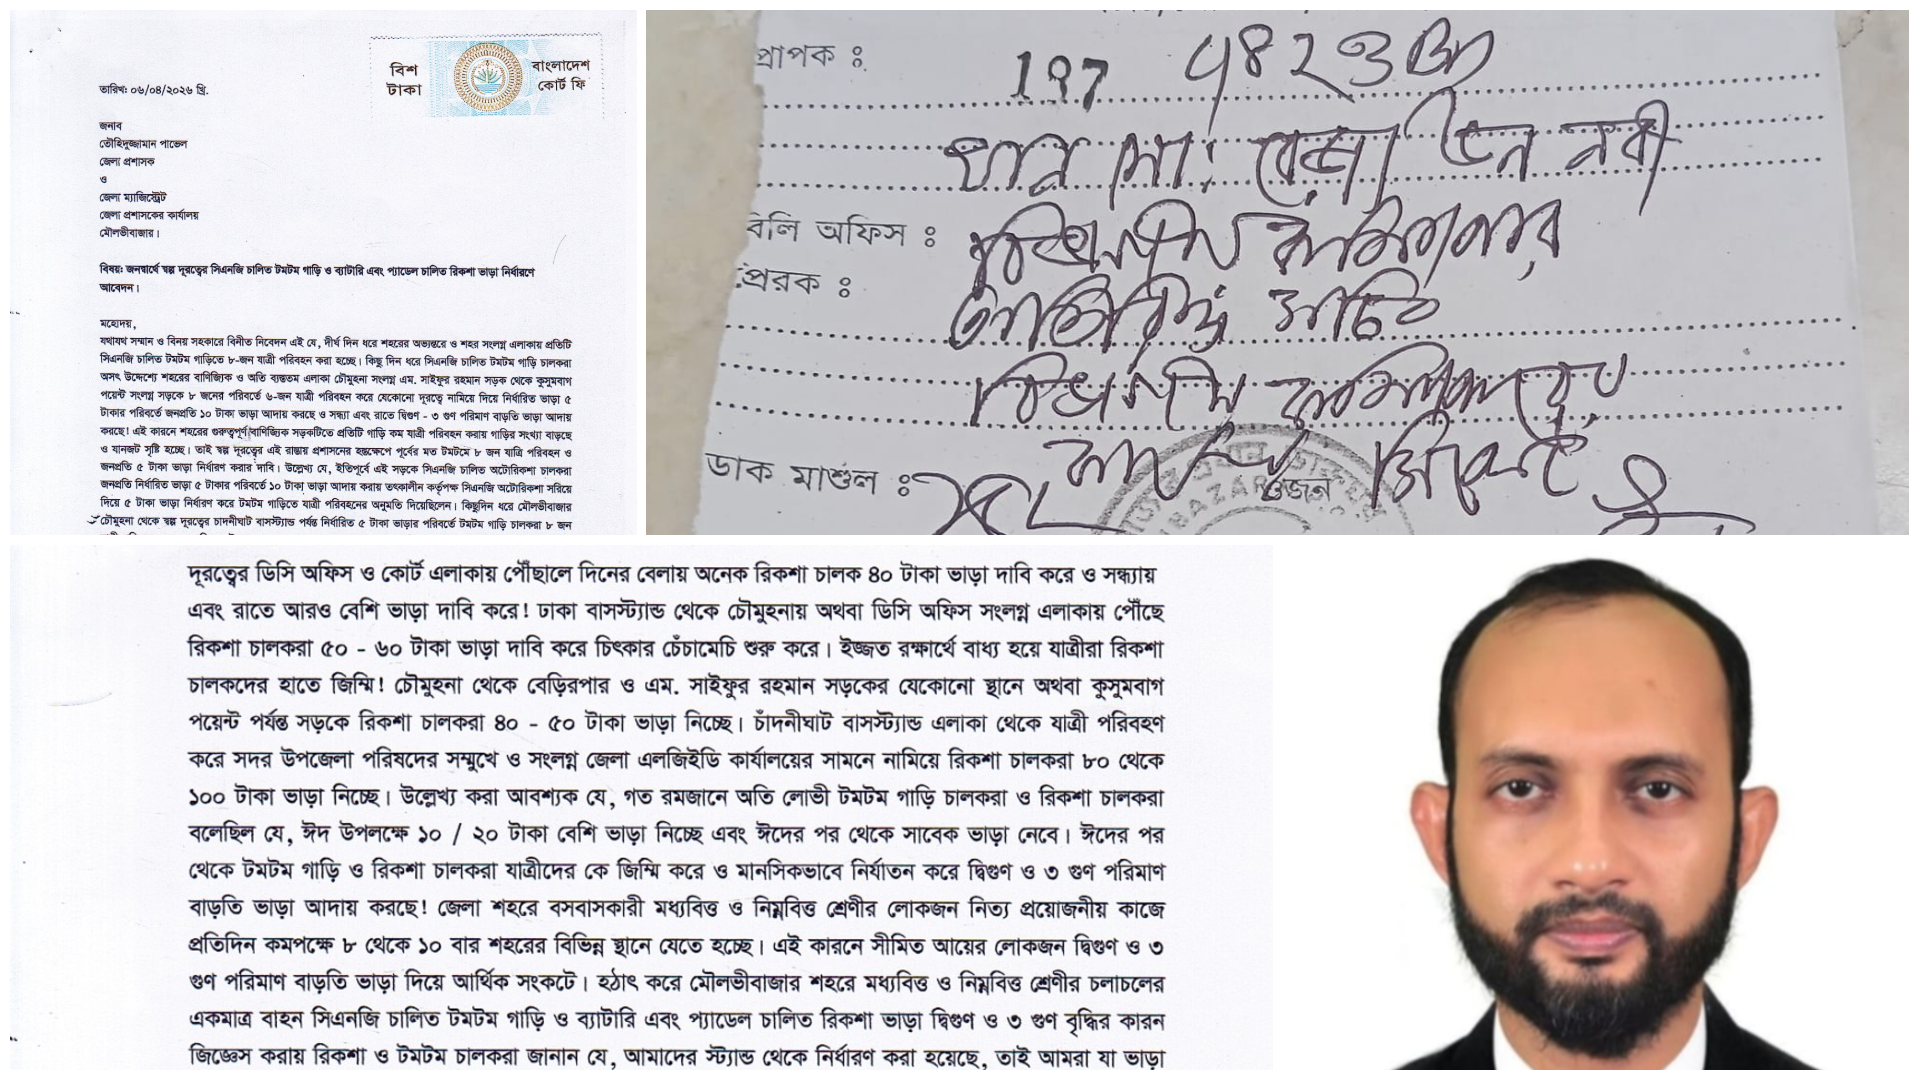 বিশ টাকা
বাংলাদেশ কোর্ট ফি
তারিখ: ০৬/০৪/২০২৬ খ্রি.
জনাব
তৌহিদুজ্জামান পাভেল
জেলা প্রশাসক
ও
জেলা ম্যাজিস্ট্রেট
জেলা প্রশাসকের কার্যালয়
মৌলভীবাজার।
বিষয়: জনস্বার্থে স্বল্প দূরত্বের সিএনজি চালিত টমটম গাড়ি ও ব্যাটারি এবং প্যাডেল চালিত রিকশা ভাড়া নির্ধারণে
আবেদন।
মহোদয়,
যথাযথ সম্মান ও বিনয় সহকারে বিনীত নিবেদন এই যে, দীর্ঘ দিন ধরে শহরের অভ্যন্তরে ও শহর সংলগ্ন এলাকায় প্রতিটি
সিএনজি চালিত টমটম গাড়িতে ৮-জন যাত্রী পরিবহন করা হচ্ছে। কিছু দিন ধরে সিএনজি চালিত টমটম গাড়ি চালকরা
অসৎ উদ্দেশ্যে শহরের বাণিজ্যিক ও অতি ব্যস্ততম এলাকা চৌমুহনা সংলগ্ন এম. সাইফুর রহমান সড়ক থেকে কুসুমবাগ
পয়েন্ট সংলগ্ন সড়কে ৮ জনের পরিবর্তে ৬-জন যাত্রী পরিবহন করে যেকোনো দূরত্বে নামিয়ে দিয়ে নির্ধারিত ভাড়া ৫
টাকার পরিবর্তে জনপ্রতি ১০ টাকা ভাড়া আদায় করছে ও সন্ধ্যা এবং রাতে দ্বিগুণ - ৩ গুণ পরিমাণ বাড়তি ভাড়া আদায়
করছে! এই কারনে শহরের গুরুত্বপূর্ণ বাণিজ্যিক সড়কটিতে প্রতিটি গাড়ি কম যাত্রী পরিবহন করায় গাড়ির সংখ্যা বাড়ছে
ও যানজট সৃষ্টি হচ্ছে। তাই স্বল্প দূরত্বের এই রাস্তায় প্রশাসনের হস্তক্ষেপে পূর্বের মত টমটমে ৮ জন যাত্রি পরিবহন ও
জনপ্রতি ৫ টাকা ভাড়া নির্ধারণ করার দাবি। উল্লেখ্য যে, ইতিপূর্বে এই সড়কে সিএনজি চালিত অটোরিকশা চালকরা
জনপ্রতি নির্ধারিত ভাড়া ৫ টাকার পরিবর্তে ১০ টাকা ভাড়া আদায় করায় তৎকালীন কর্তৃপক্ষ সিএনজি অটোরিকশা সরিয়ে
দিয়ে ৫ টাকা ভাড়া নির্ধারণ করে টমটম গাড়িতে যাত্রী পরিবহনের অনুমতি দিয়েছিলেন। কিছুদিন ধরে মৌলভীবাজার
চৌমুহনা থেকে স্বল্প দূরত্বের চাদনীঘাট বাসস্ট্যান্ড পর্যন্ত নির্ধারিত ৫ টাকা ভাড়ার পরিবর্তে টমটম গাড়ি চালকরা ৮ জন
প্রাপক :
197
খান মো: রেজা উন নবী
বিলি অফিস :
বিভাগীয় কমিশনার
প্রেরক :
বিভাগীয় কমিশনারের
ডাক মাশুল :
কার্যালয় সিলেট
ওজন
দূরত্বের ডিসি অফিস ও কোর্ট এলাকায় পৌঁছালে দিনের বেলায় অনেক রিকশা চালক ৪০ টাকা ভাড়া দাবি করে ও সন্ধ্যায়
এবং রাতে আরও বেশি ভাড়া দাবি করে! ঢাকা বাসস্ট্যান্ড থেকে চৌমুহনায় অথবা ডিসি অফিস সংলগ্ন এলাকায় পৌঁছে
রিকশা চালকরা ৫০ - ৬০ টাকা ভাড়া দাবি করে চিৎকার চেঁচামেচি শুরু করে। ইজ্জত রক্ষার্থে বাধ্য হয়ে যাত্রীরা রিকশা
চালকদের হাতে জিম্মি! চৌমুহনা থেকে বেড়িরপার ও এম. সাইফুর রহমান সড়কের যেকোনো স্থানে অথবা কুসুমবাগ
পয়েন্ট পর্যন্ত সড়কে রিকশা চালকরা ৪০ - ৫০ টাকা ভাড়া নিচ্ছে। চাঁদনীঘাট বাসস্ট্যান্ড এলাকা থেকে যাত্রী পরিবহণ
করে সদর উপজেলা পরিষদের সম্মুখে ও সংলগ্ন জেলা এলজিইডি কার্যালয়ের সামনে নামিয়ে রিকশা চালকরা ৮০ থেকে
১০০ টাকা ভাড়া নিচ্ছে। উল্লেখ্য করা আবশ্যক যে, গত রমজানে অতি লোভী টমটম গাড়ি চালকরা ও রিকশা চালকরা
বলেছিল যে, ঈদ উপলক্ষে ১০ / ২০ টাকা বেশি ভাড়া নিচ্ছে এবং ঈদের পর থেকে সাবেক ভাড়া নেবে। ঈদের পর
থেকে টমটম গাড়ি ও রিকশা চালকরা যাত্রীদের কে জিম্মি করে ও মানসিকভাবে নির্যাতন করে দ্বিগুণ ও ৩ গুণ পরিমাণ
বাড়তি ভাড়া আদায় করছে! জেলা শহরে বসবাসকারী মধ্যবিত্ত ও নিম্নবিত্ত শ্রেণীর লোকজন নিত্য প্রয়োজনীয় কাজে
প্রতিদিন কমপক্ষে ৮ থেকে ১০ বার শহরের বিভিন্ন স্থানে যেতে হচ্ছে। এই কারনে সীমিত আয়ের লোকজন দ্বিগুণ ও ৩
গুণ পরিমাণ বাড়তি ভাড়া দিয়ে আর্থিক সংকটে। হঠাৎ করে মৌলভীবাজার শহরে মধ্যবিত্ত ও নিম্নবিত্ত শ্রেণীর চলাচলের
একমাত্র বাহন সিএনজি চালিত টমটম গাড়ি ও ব্যাটারি এবং প্যাডেল চালিত রিকশা ভাড়া দ্বিগুণ ও ৩ গুণ বৃদ্ধির কারন
জিজ্ঞেস করায় রিকশা ও টমটম চালকরা জানান যে, আমাদের স্ট্যান্ড থেকে নির্ধারণ করা হয়েছে, তাই আমরা যা ভাড়া